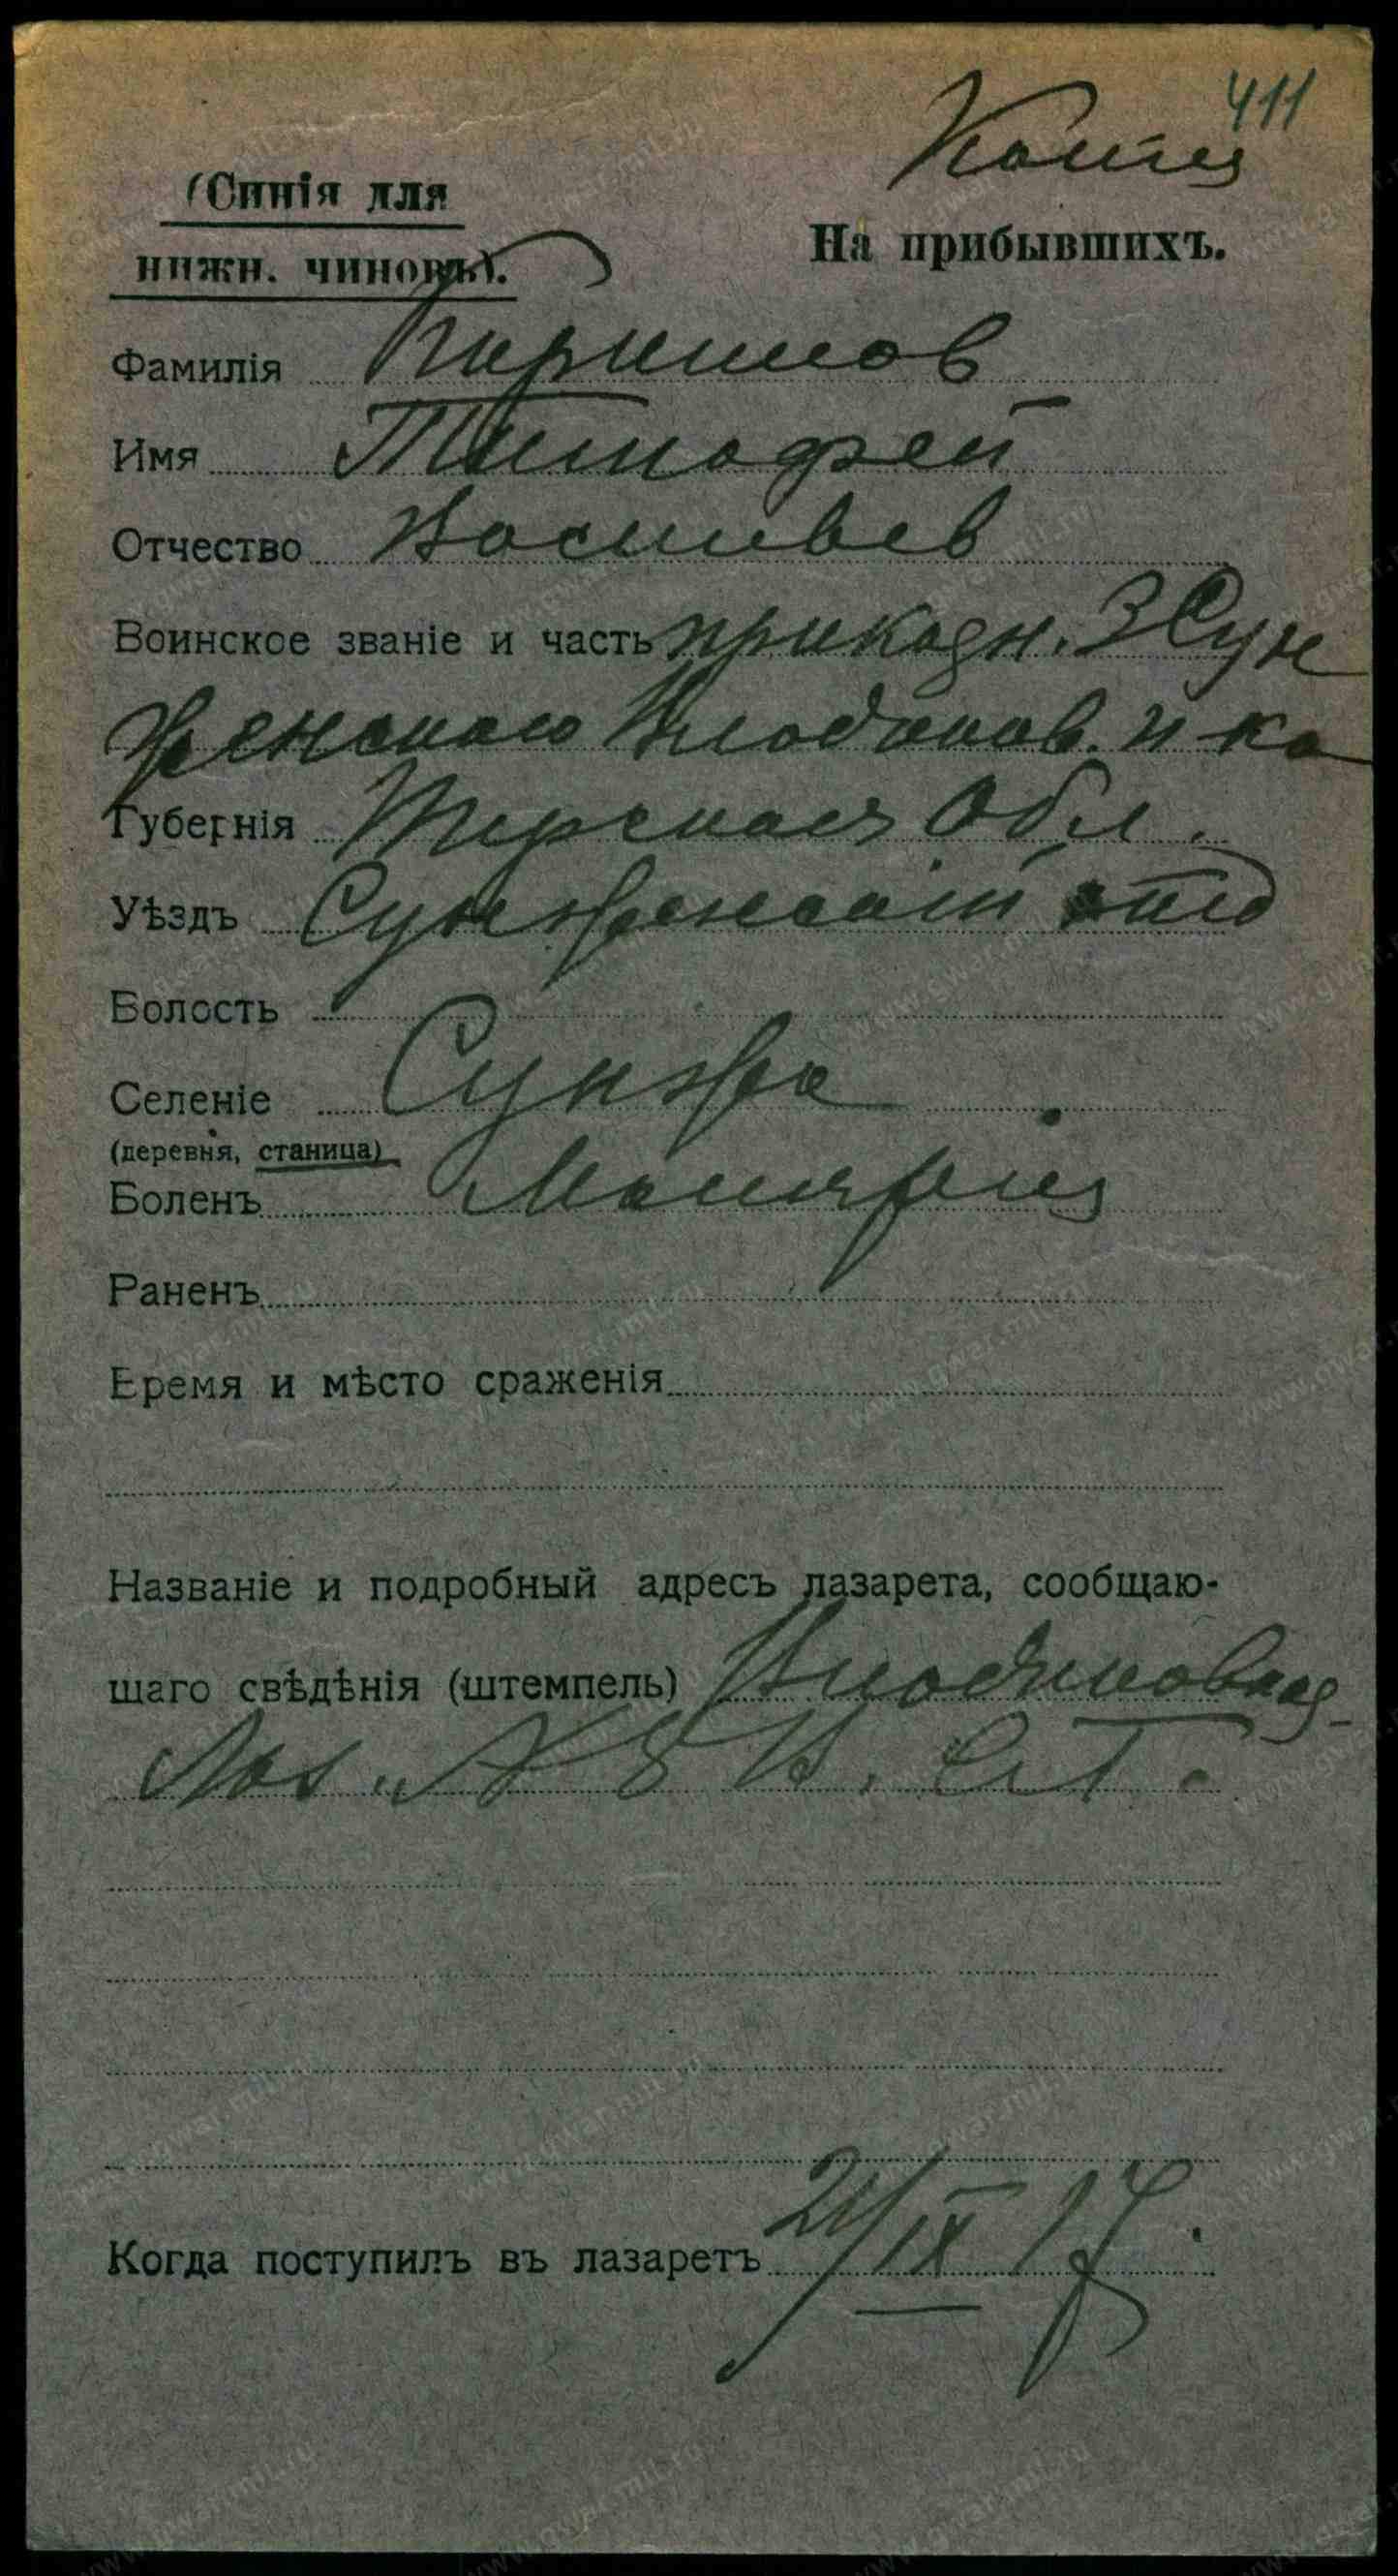 411
Копия
(Синія для
нижн. чиновъ).
На прибывшихъ.
Фамилія Ширшлов
Имя Тимофей
Отчество Васильев
Воинское званіе и часть приказн. 3 Сун
женского Владикав. п ка
Губернія Терская Обл.
Уѣздъ Сунженский отд
Волость
Селеніе Сунжа
(деревня, станица)
Боленъ Малярия
Раненъ
Время и мѣсто сраженія
Названіе и подробный адресъ лазарета, сообщаю-
щаго свѣдѣнія (штемпель)
Лаз.
Когда поступилъ въ лазаретъ 21/IX 17.